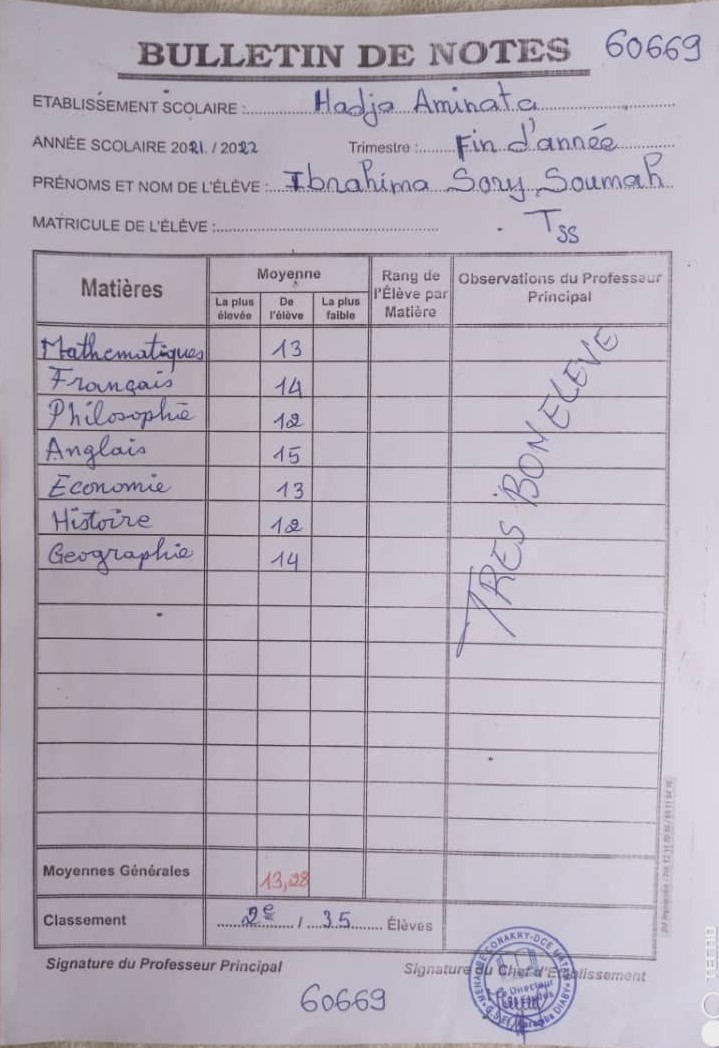 BULLETIN DE NOTES 60669
ETABLISSEMENT SCOLAIRE : Hadja Aminata
ANNÉE SCOLAIRE 2021 / 2022 Trimestre : Fin d'année
PRÉNOMS ET NOM DE L'ÉLÈVE : Ibrahima Sory Soumah
MATRICULE DE L'ÉLÈVE : TSS
Matières Moyenne Rang de l'Élève par Matière Observations du Professeur Principal
La plus élevée De l'élève La plus faible
Mathematiques 13
Français 14
Philosophie 12
Anglais 15
Economie 13
Histoire 12
Geographie 14
TRES BON ELEVE
Moyennes Générales 13,28
Classement 2e / 35 Élèves
Signature du Professeur Principal Signature du Chef d'Etablissement
60669
CONAKRY-DCE MATAM
Directeur
DIABY
TECNO